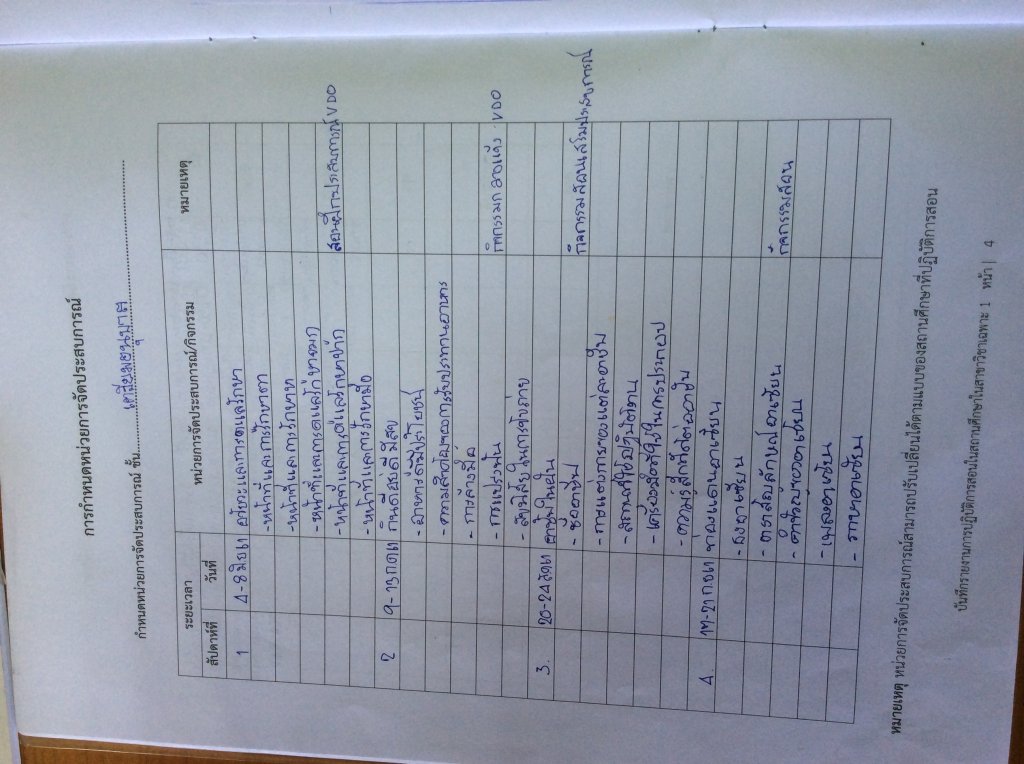 การกำหนดหน่วยการจัดประสบการณ์
กำหนดหน่วยการจัดประสบการณ์ ชั้น เตรียมอนุบาล
ระยะเวลา หน่วยการจัดประสบการณ์/กิจกรรม หมายเหตุ
สัปดาห์ที่ วันที่
1 4-8 มิย61 อวัยวะและการดูแลรักษา
- หน้าที่และการรักษาตา
- หน้าที่และการรักษาหู
- หน้าที่และการดูแลรักษาจมูก
- หน้าที่และการดูแลรักษาปาก สอนเสริมประสบการณ์ VDO
- หน้าที่และการรักษามือ
2 9-13 กค61 กินดีอยู่ดีมีสุข
- อาหารดีมีประโยชน์
- ความสำคัญของการรับประทานอาหาร
- การล้างมือ
- การแปรงฟัน กิจกรรมกลางแจ้ง VDO
- สุขนิสัยในการขับถ่าย
3. 20-24 สค61 อาชีพในฝัน
- ชื่ออาชีพ กิจกรรมสอนเสริมประสบการณ์
- การแต่งกายของแต่ละอาชีพ
- สถานที่ใช้ปฏิบัติงาน
- เครื่องมือที่ใช้ในการประกอบ
- ความรู้สึกที่ดีต่ออาชีพ
4. 17-21 ก.ย61 ท่องแดนอาเซียน
- ธงอาเซียน
- ตราสัญลักษณ์อาเซียน
- คำขวัญของอาเซียน กิจกรรมสอน
- เพลงอาเซียน
- ภาษาอาเซียน
หมายเหตุ หน่วยการจัดประสบการณ์สามารถปรับเปลี่ยนได้ตามแบบของสถานศึกษาที่ปฏิบัติการสอน
บันทึกรายงานการปฏิบัติการสอนในสถานศึกษาในสาขาวิชาเฉพาะ 1 หน้า | 4